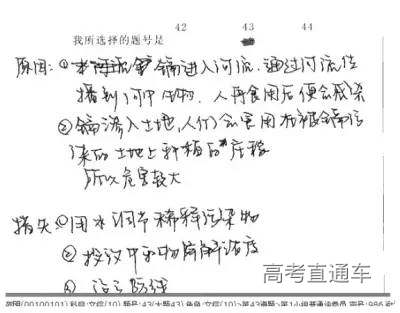 42 43 44
我所选择的题号是
原因:①镉进入河流,通过河流传
播到河中生物,人再食用后便会感染
②镉渗入土地,人们会食用在被镉污
染的土地上种植的庄稼
所以危害较大
措失:①用水调节稀释污染物
②投放中和物降解浓度
③
高考直通车